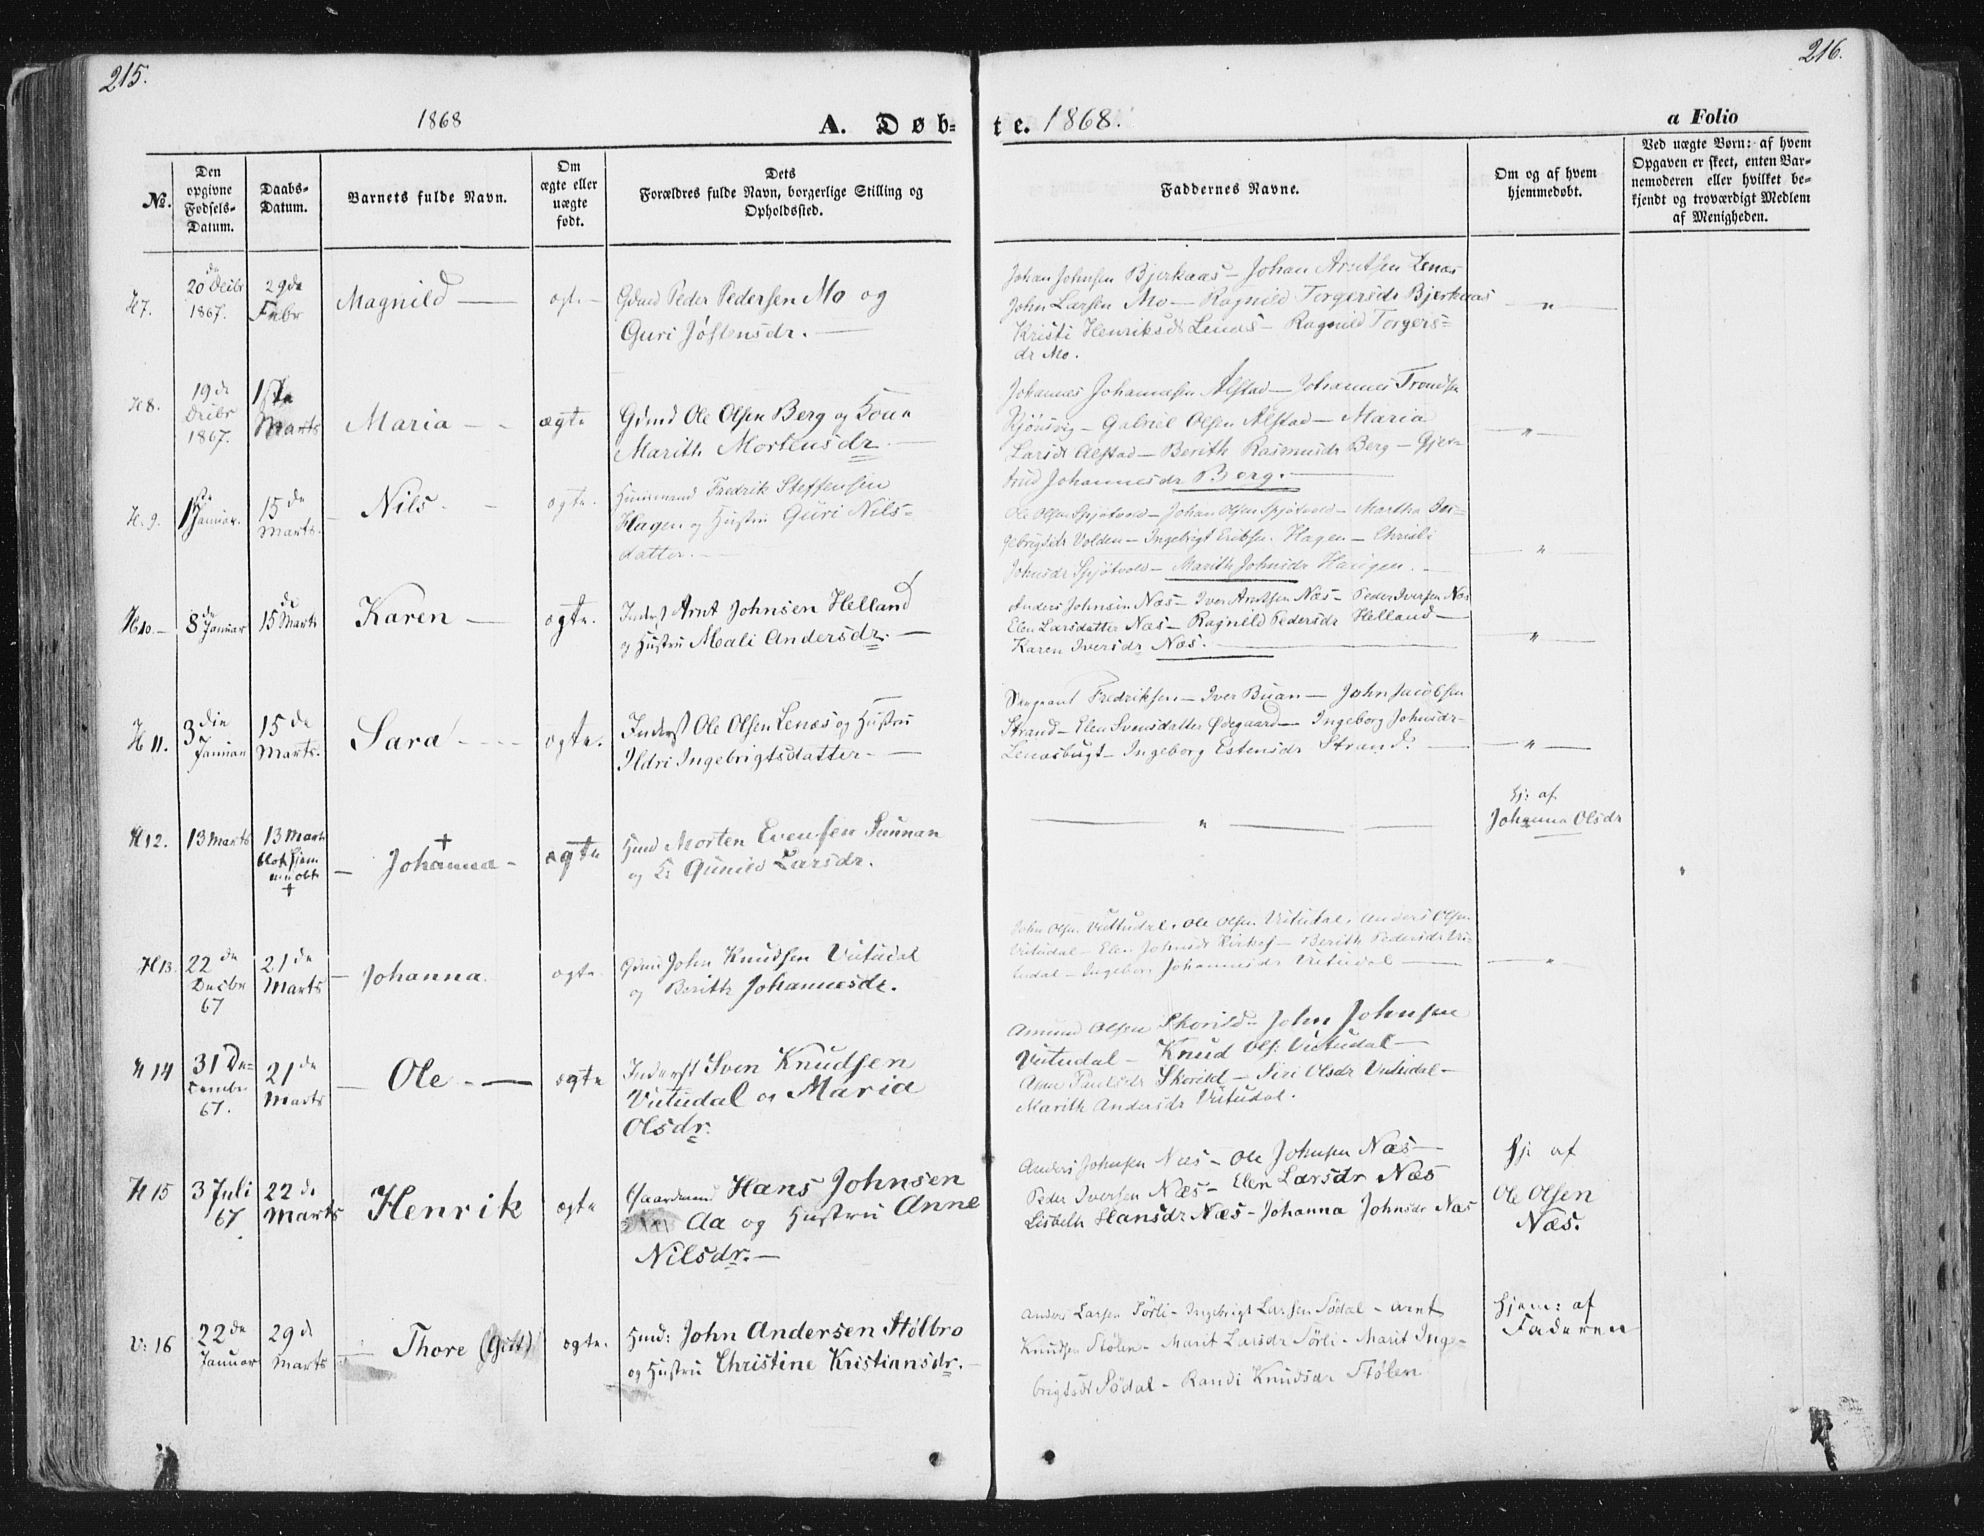 215.
216.
1868
A. Døb-
te. 1868.
a Folio
No.
Den
opgivne
Fødsels-
Datum.
Daabs-
Datum.
Barnets fulde Navn.
Om
ægte eller
uægte
født.
Dets
Forældres fulde Navn, borgerlige Stilling og
Opholdssted.
Faddernes Navne.
Om og af hvem
hjemmedøbt.
Ved uægte Børn: af hvem
Opgaven er skeet, enten Bar-
nemoderen eller hvilket be-
kjendt og troværdigt Medlem
af Menigheden.
H7.
20de Decbr
1867.
29de
Febr
Magnild —
ægte —
Gdmd Peder Pedersen Mo og
Guri Jøstensdr. —
Johan Johnsen Bjerkaas — Johan Arntsen Lenæs
John Larsen Mo — Ragnild Torgersdr Bjerkaas
Kristi Henriksdt Lenæs — Ragnild Torgers-
dr Mo.
"
H8.
19de
Decbr
1867.
1ste
Marts
Maria —
ægte
Gdmd Ole Olsen Berg og Kone
Marith Mortensdr. —
Johannes Johannesen Alstad — Johannes Trondsen
— Gabriel Olsen Alstad — Maria
Larsdt Alstad — Berith Rasmusdr Berg — Gjer-
trud Johannesdr Berg. —
"
H. 9.
1ste
Januar.
15de
Marts.
Nils. —
ægte.
Huusmand Fredrik Steffensen
Hagen og Hustru Guri Nils-
datter. —
Ole Olsen Spjøtvold — Johan Olsen Spjøtvold — Martha In-
gebrigtsdr Volden — Ingebrigt Eriksen Hagen — Christi
Johnsdr Spjøtvold — Marith Johnsdr Haugen. —
"
H10 —
8de Januar
15de Marts
Karen —
ægte.
Inderst Arnt Johnsen Helland
og Hustru Mali Andersdr. —
Anders Johnsen Næs — Iver Arntsen Næs — Peder Iversen Næs
Elen Larsdatter Næs — Ragnild Pedersdr Helland —
Karen Iversdr Næs. —
"
H 11.
3die
Januar
15de
Marts.
Sara —
ægte.
Inderst Ole Olsen Lenæs og Hustru
Ildri Ingebrigtsdatter —
Sergeant Fredriksen — Iver Buan — John Jacobsen
Strand — Elen Svensdatter Ødegaard — Ingeborg Johnsdr
Lenæsbugt — Ingeborg Estensdr Strand. —
"
H12.
13 Marts
13 Marts
blot hjem
medøbt
+
+
— Johanna —
ægte
Hmd Morten Evensen Sunnan
og H Gunild Larsdr.
"
Hj: af
Johanna Olsdr
H13.
22de
Decbr
67
21de
Marts
— Johanna.
ægte.
Gdmd John Knudsen Vutudal
og Berith Johannesdr.
John Olsen Vuttudal. Ole Olsen Vutudal. Anders Olsen
Vutudal — Elen Johnsdt — Berith Pedersdr Vu-
tudal — Ingebor Johannesdr Vutudal —
"
H 14
31 De-
cember
67.
21de
Marts
— Ole —
ægte
Inderst Sven Knudsen
Vutudal og Maria
Olsdr.
Amund Olsen Skorild — John Johnsen
Vutudal — Knud Ols: Vutudal —
Ane Paulsdr Skorild — Siri Olsdr Vutudal —
Marith Andersdr Vutudal.
H 15
3 Juli
67.
22de
Marts
Henrik
ægte
Gaardmand Hans Johnsen
Aa og Hustru Anne
Nilsdr. —
Anders Johnsen Næs — Ole Johnsen Næs —
Peder Iversen Næs — Elen Larsdr Næs
Lisbeth Hansdr Næs — Johanna Johnsdr Næs
Hj: af
Ole Olsen
Næs.
V: 16
22de
Januar
29de
Marts
— Thore (Gut)
ægte.
Hmd: John Andersen Stølbro
og Hustru Christine Kristiansdr. —
Anders Larsen Sørli — Ingebrigt Larsen Sødal — Arnt
Knudsen Stølen — Marit Larsdr Sørli — Marit Inge-
brigtsdt Sødal — Randi Knudsdr Stølen
Hjem: af
Faderen